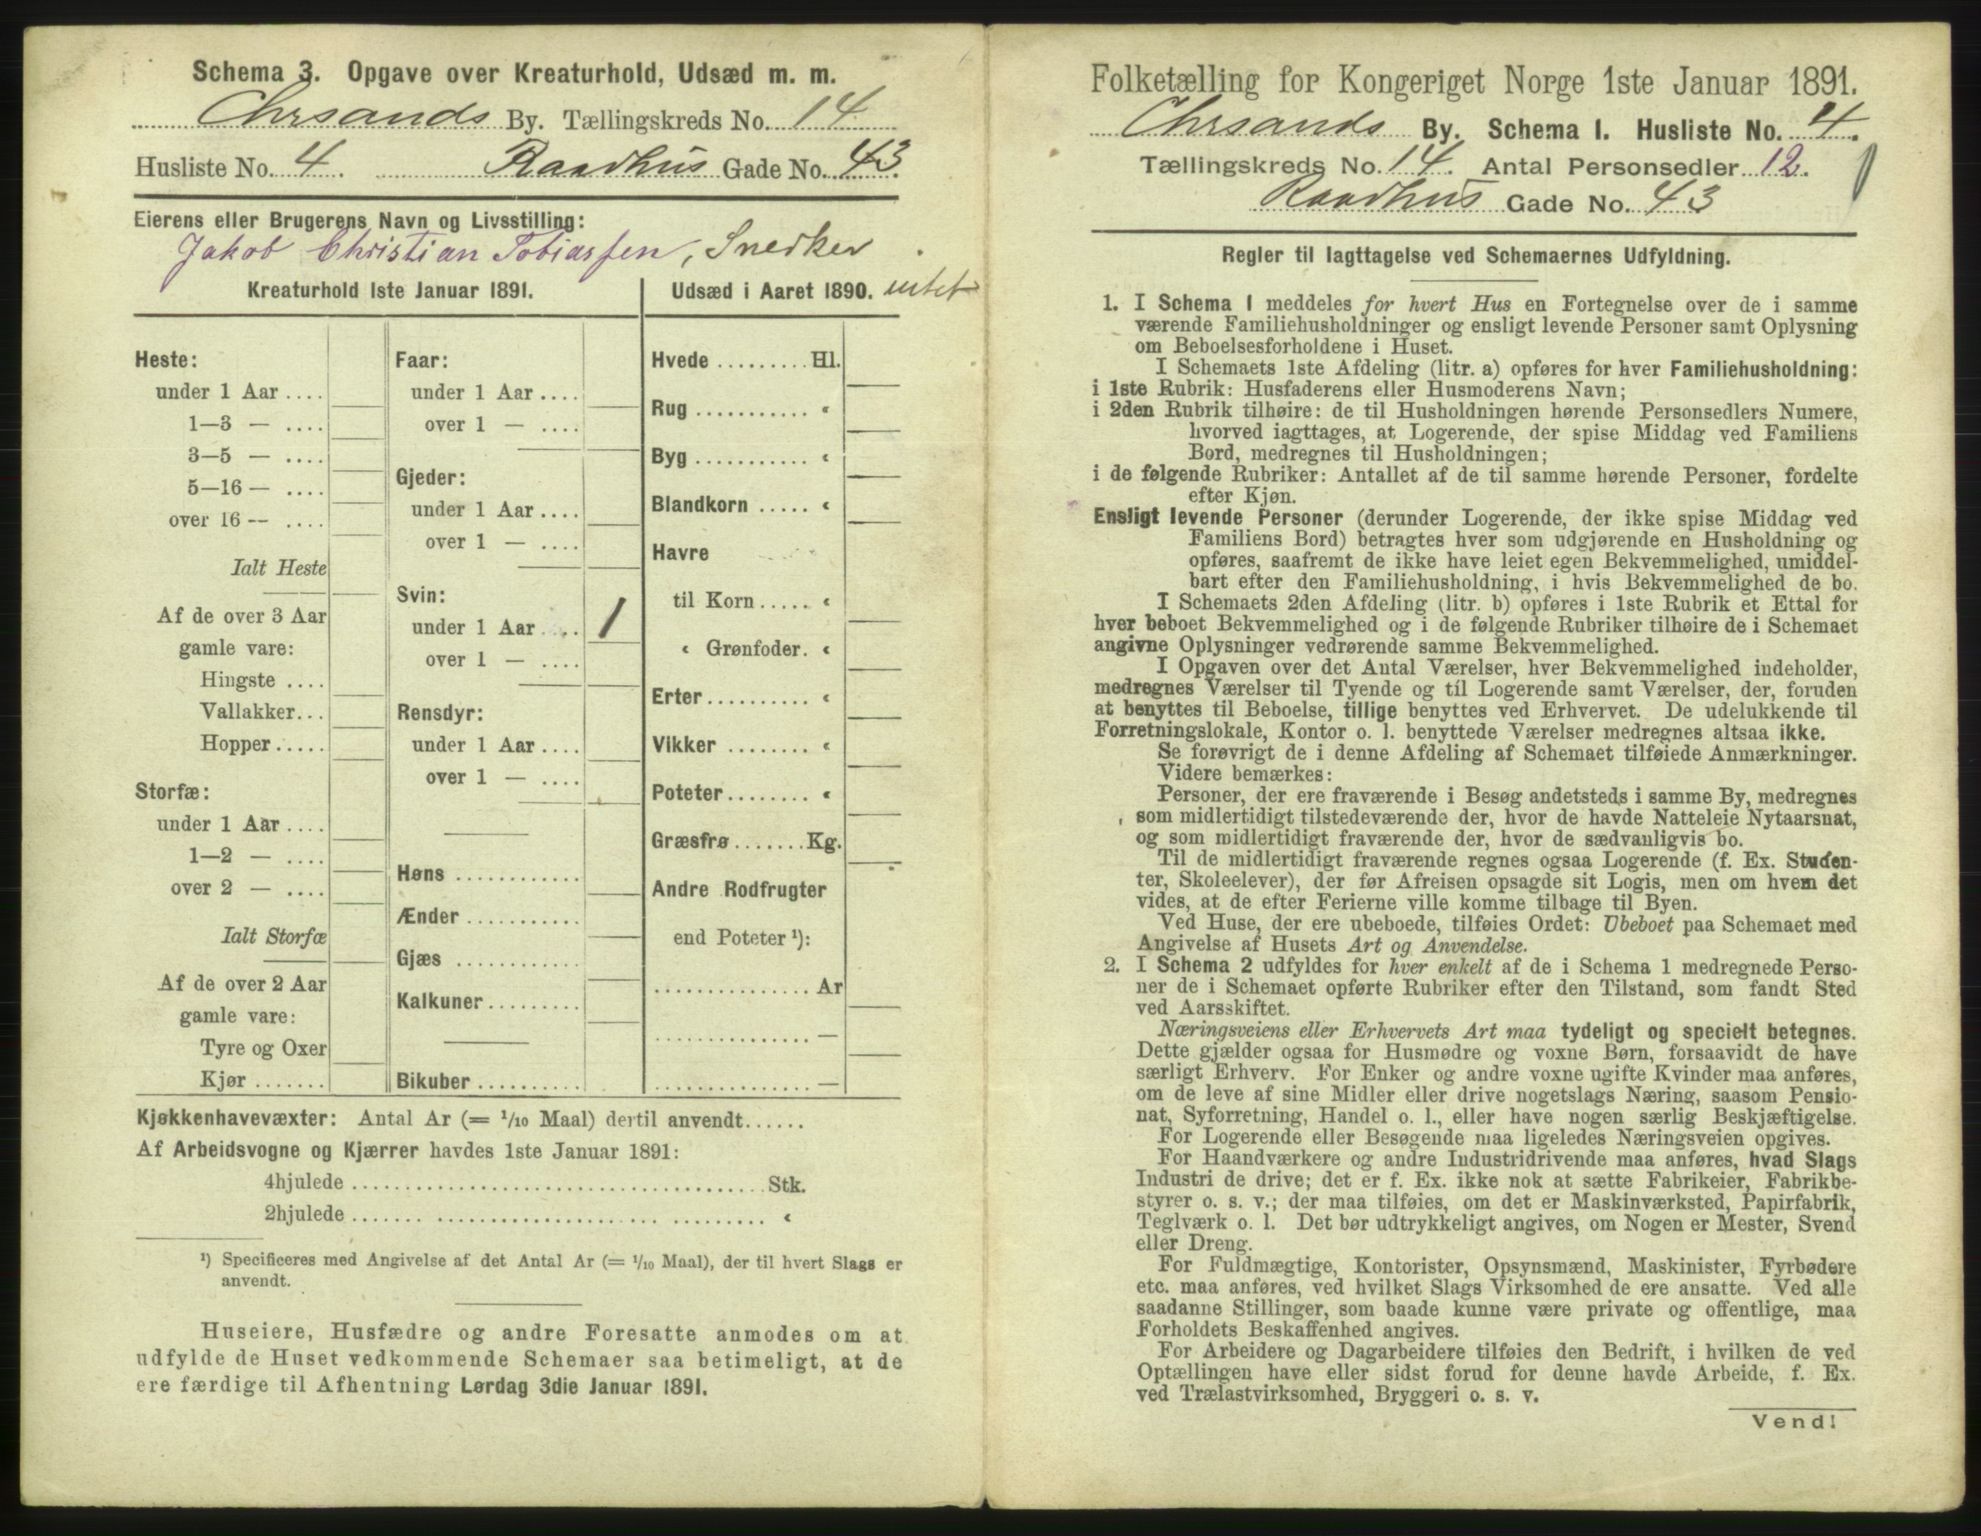 Schema 3. Opgave over Kreaturhold, Udsæd m. m.
Chrsands By. Tællingskreds No. 14
Husliste No. 4. Raadhus Gade No. 43.
Eierens eller Brugerens Navn og Livsstilling:
Jakob Christian Tobiassen, Snedker.
Kreaturhold 1ste Januar 1891.
Heste:
under 1 Aar ....
1—3 — ....
3—5 — ....
5—16 — ....
over 16 — ....
Ialt Heste
Af de over 3 Aar
gamle vare:
Hingste ....
Vallakker...
Hopper.....
Storfæ:
under 1 Aar ....
1—2 — ....
over 2 — ....
Ialt Storfæ
Af de over 2 Aar
gamle vare:
Tyre og Oxer
Kjør .......
Faar:
under 1 Aar ....
over 1 — ....
Gjeder:
under 1 Aar ....
over 1 — ....
Svin:
under 1 Aar .... 1
over 1 — ....
Rensdyr:
under 1 Aar ....
over 1 — ....
Høns ............
Ænder ...........
Gjæs ............
Kalkuner.........
Bikuber ..........
Udsæd i Aaret 1890. intet
Hvede .........Hl.
Rug ........... «
Byg ........... «
Blandkorn ..... «
Havre
til Korn ..... «
« Grønfoder. «
Erter .......... «
Vikker ........ «
Poteter ........ «
Græsfrø .......Kg.
Andre Rodfrugter
end Poteter ¹):
............... Ar
............... —
............... —
Kjøkkenhavevæxter: Antal Ar (= 1/10 Maal) dertil anvendt......
Af Arbeidsvogne og Kjærrer havdes 1ste Januar 1891:
4hjulede ........................................ Stk.
2hjulede ....... ..................... ......... «
¹) Specificeres med Angivelse af det Antal Ar (= 1/10 Maal), der til hvert Slags er
anvendt.
Huseiere, Husfædre og andre Foresatte anmodes om at
udfylde de Huset vedkommende Schemaer saa betimeligt, at de
ere færdige til Afhentning Lørdag 3die Januar 1891.
Folketælling for Kongeriget Norge 1ste Januar 1891.
Chrsands By. Schema 1. Husliste No. 4.
Tællingskreds No. 14. Antal Personsedler 12.
Raadhus Gade No. 43
Regler til Iagttagelse ved Schemaernes Udfyldning.
1. I Schema 1 meddeles for hvert Hus en Fortegnelse over de i samme
værende Familiehusholdninger og ensligt levende Personer samt Oplysning
om Beboelsesforholdene i Huset.
I Schemaets 1ste Afdeling (litr. a) opføres for hver Familiehusholdning:
i 1ste Rubrik: Husfaderens eller Husmoderens Navn;
i 2den Rubrik tilhøire: de til Husholdningen hørende Personsedlers Numere,
hvorved iagttages, at Logerende, der spise Middag ved Familiens
Bord, medregnes til Husholdningen;
i de følgende Rubriker: Antallet af de til samme hørende Personer, fordelte
efter Kjøn.
Ensligt levende Personer (derunder Logerende, der ikke spise Middag ved
Familiens Bord) betragtes hver som udgjørende en Husholdning og
opføres, saafremt de ikke have leiet egen Bekvemmelighed, umiddel-
bart efter den Familiehusholdning, i hvis Bekvemmelighed de bo.
I Schemaets 2den Afdeling (litr. b) opføres i 1ste Rubrik et Ettal for
hver beboet Bekvemmelighed og i de følgende Rubriker tilhøire de i Schemaet
angivne Oplysninger vedrørende samme Bekvemmelighed.
I Opgaven over det Antal Værelser, hver Bekvemmelighed indeholder,
medregnes Værelser til Tyende og til Logerende samt Værelser, der, foruden
at benyttes til Beboelse, tillige benyttes ved Erhvervet. De udelukkende til
Forretningslokale, Kontor o. l. benyttede Værelser medregnes altsaa ikke.
Se forøvrigt de i denne Afdeling af Schemaet tilføiede Anmærkninger.
Videre bemærkes:
Personer, der ere fraværende i Besøg andetsteds i samme By, medregnes
som midlertidigt tilstedeværende der, hvor de havde Natteleie Nytaarsnat,
og som midlertidigt fraværende der, hvor de sædvanligvis bo.
Til de midlertidigt fraværende regnes ogsaa Logerende (f. Ex. Studen-
ter, Skoleelever), der før Afreisen opsagde sit Logis, men om hvem det
vides, at de efter Ferierne ville komme tilbage til Byen.
Ved Huse, der ere ubeboede, tilføies Ordet: Ubeboet paa Schemaet med
Angivelse af Husets Art og Anvendelse.
2. I Schema 2 udfyldes for hver enkelt af de i Schema 1 medregnede Perso-
ner de i Schemaet opførte Rubriker efter den Tilstand, som fandt Sted
ved Aarsskiftet.
Næringsveiens eller Erhvervets Art maa tydeligt og specielt betegnes.
Dette gjælder ogsaa for Husmødre og voxne Børn, forsaavidt de have
særligt Erhverv. For Enker og andre voxne ugifte Kvinder maa anføres,
om de leve af sine Midler eller drive nogetslags Næring, saasom Pensio-
nat, Syforretning, Handel o. l., eller have nogen særlig Beskjæftigelse.
For Logerende eller Besøgende maa ligeledes Næringsveien opgives.
For Haandværkere og andre Industridrivende maa anføres, hvad Slags
Industri de drive; det er f. Ex. ikke nok at sætte Fabrikeier, Fabrikbe-
styrer o. s. v.; der maa tilføies, om det er Maskinværksted, Papirfabrik,
Teglværk o. l. Det bør udtrykkeligt angives, om Nogen er Mester, Svend
eller Dreng.
For Fuldmægtige, Kontorister, Opsynsmænd, Maskinister, Fyrbødere
etc. maa anføres, ved hvilket Slags Virksomhed de ere ansatte. Ved alle
saadanne Stillinger, som baade kunne være private og offentlige, maa
Forholdets Beskaffenhed angives.
For Arbeidere og Dagarbeidere tilføies den Bedrift, i hvilken de ved
Optællingen have eller sidst forud for denne havde Arbeide, f. Ex.
ved Trælastvirksomhed, Bryggeri o. s. v.
Vend!